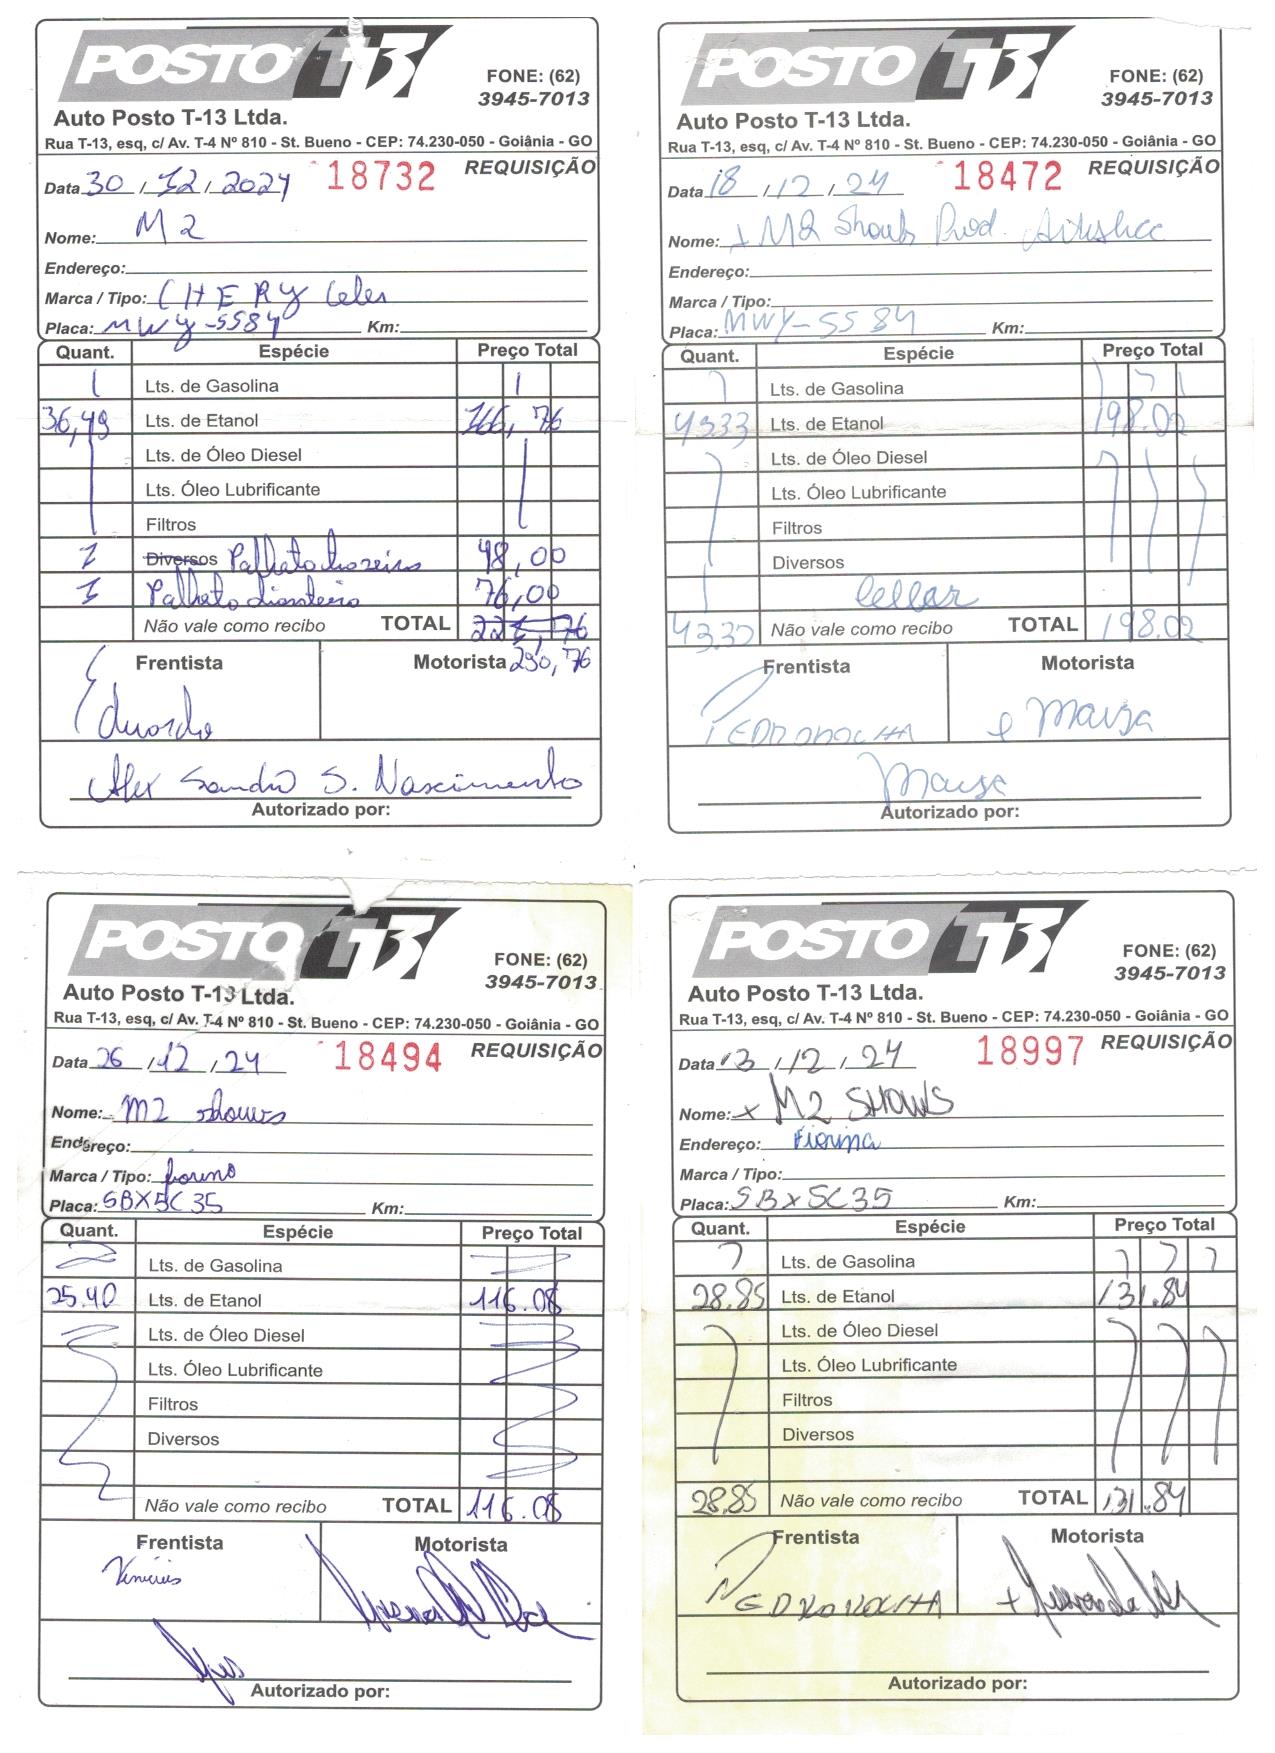 POSTO T-13
FONE: (62)
3945-7013
Auto Posto T-13 Ltda.
Rua T-13, esq, c/ Av. T-4 Nº 810 - St. Bueno - CEP: 74.230-050 - Goiânia - GO
Data 30 / 12 / 2024 18732 REQUISIÇÃO
Nome: M2
Endereço:
Marca / Tipo: CHERY Celer
Placa: MWY-5584 Km:
Quant. Espécie Preço Total
Lts. de Gasolina
36,49 Lts. de Etanol 166,76
Lts. de Óleo Diesel
Lts. Óleo Lubrificante
Filtros
1 Diversos Palheta traseira 48,00
1 Palheta dianteira 76,00
Não vale como recibo TOTAL 221,76
Frentista Motorista 290,76
Eduardo
Alex Sandro S. Nascimento
Autorizado por:
POSTO T-13
FONE: (62)
3945-7013
Auto Posto T-13 Ltda.
Rua T-13, esq, c/ Av. T-4 Nº 810 - St. Bueno - CEP: 74.230-050 - Goiânia - GO
Data 18 / 12 / 24 18472 REQUISIÇÃO
Nome: + M2 Shows Prod. Artistica
Endereço:
Marca / Tipo:
Placa: MWY-5584 Km:
Quant. Espécie Preço Total
Lts. de Gasolina
43.33 Lts. de Etanol 198.02
Lts. de Óleo Diesel
Lts. Óleo Lubrificante
Filtros
Diversos
43.33 Não vale como recibo TOTAL 198.02
Frentista Motorista
PEDRO ROCHA Maysa
Maysa
Autorizado por:
POSTO T-13
FONE: (62)
3945-7013
Auto Posto T-13 Ltda.
Rua T-13, esq, c/ Av. T-4 Nº 810 - St. Bueno - CEP: 74.230-050 - Goiânia - GO
Data 26 / 12 / 24 18494 REQUISIÇÃO
Nome: M2 shows
Endereço:
Marca / Tipo: fiorino
Placa: SBX5C35 Km:
Quant. Espécie Preço Total
Lts. de Gasolina
25.40 Lts. de Etanol 116.08
Lts. de Óleo Diesel
Lts. Óleo Lubrificante
Filtros
Diversos
Não vale como recibo TOTAL 116.08
Frentista Motorista
Vinicius
Autorizado por:
POSTO T-13
FONE: (62)
3945-7013
Auto Posto T-13 Ltda.
Rua T-13, esq, c/ Av. T-4 Nº 810 - St. Bueno - CEP: 74.230-050 - Goiânia - GO
Data 13 / 12 / 24 18997 REQUISIÇÃO
Nome: x M2 SHOWS
Endereço: Fiorina
Marca / Tipo:
Placa: SBX5C35 Km:
Quant. Espécie Preço Total
Lts. de Gasolina
28.85 Lts. de Etanol 131.84
Lts. de Óleo Diesel
Lts. Óleo Lubrificante
Filtros
Diversos
28.85 Não vale como recibo TOTAL 131.84
Frentista Motorista
PEDRO ROCHA
Autorizado por: